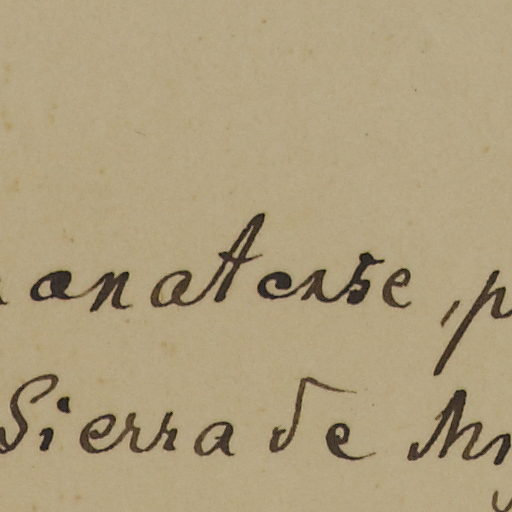 anatense, p
Sierra de